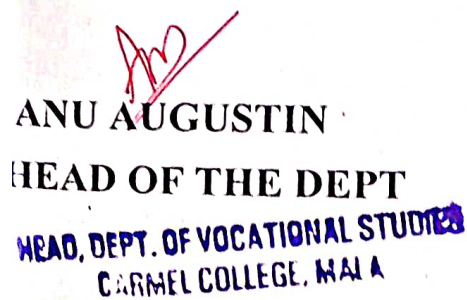 ANU AUGUSTIN
HEAD OF THE DEPT
HEAD, DEPT. OF VOCATIONAL STUDIES
CARMEL COLLEGE, MALA